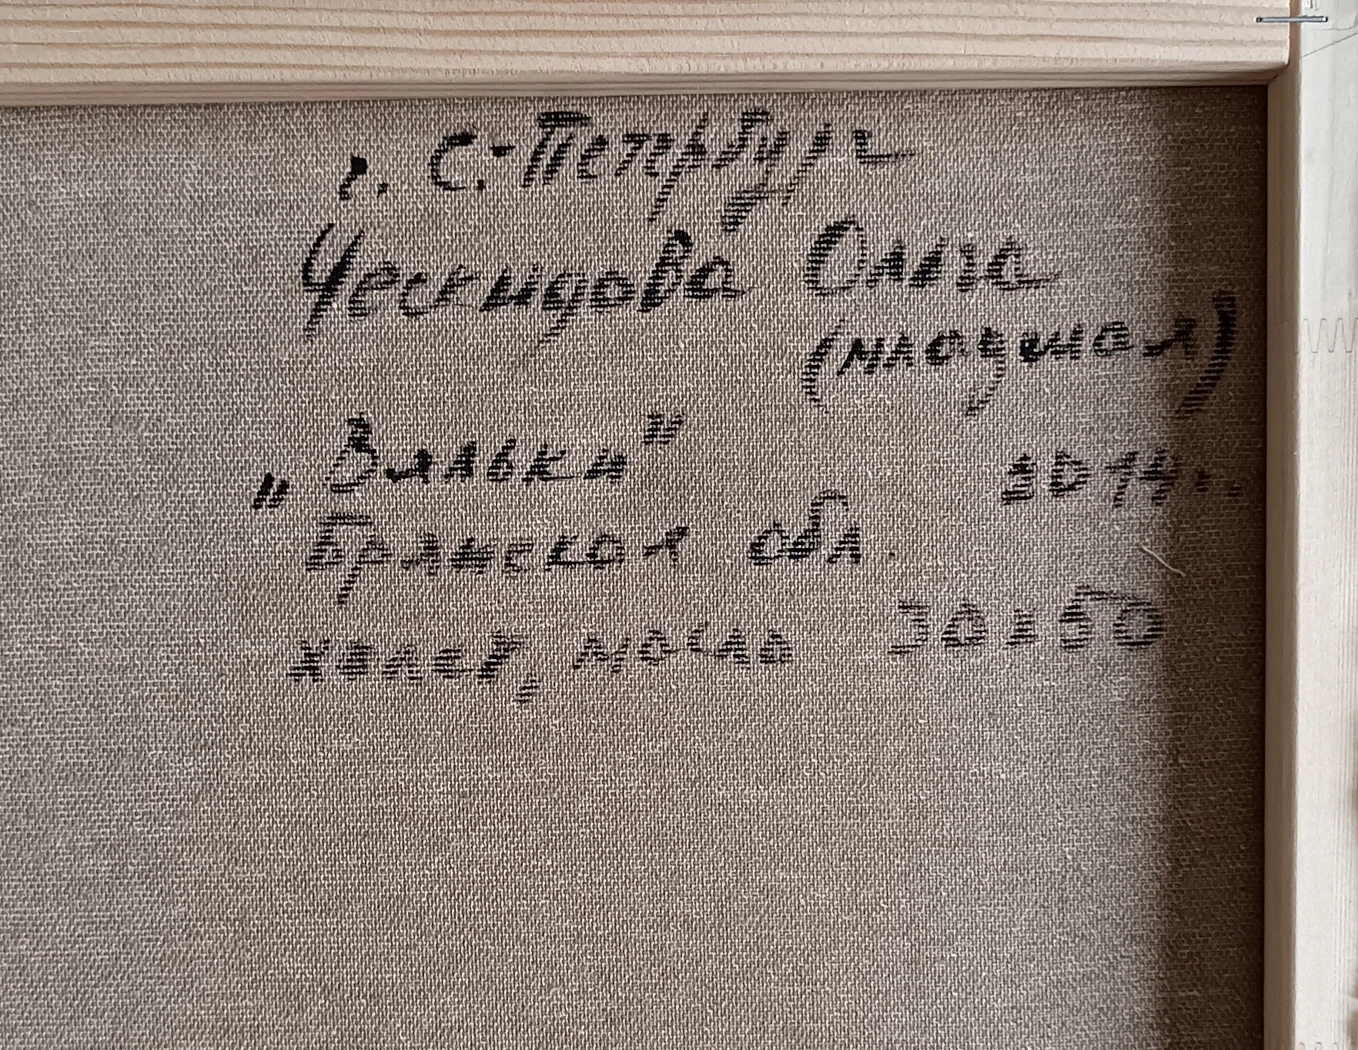 г. С.-Петербург
Ческидова Ольга
(младшая)
2014г.
Брянская обл.
холст, масло 30х50